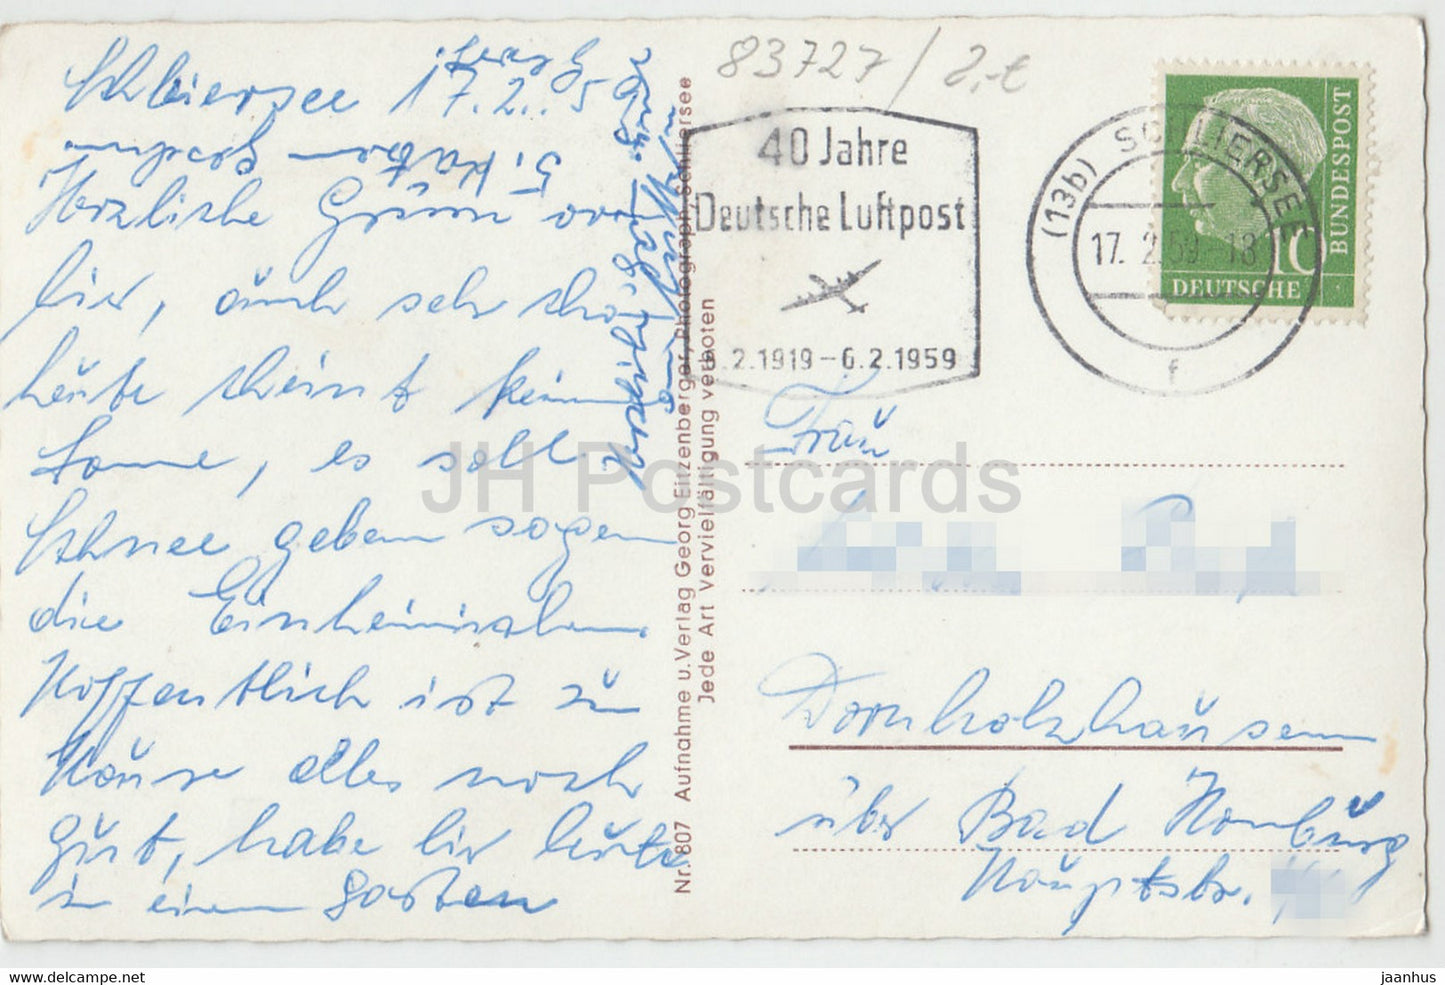 Schliersee 17.2.59
Herzliche Grüße von
hier, auch sehr schön
heute scheint keine
Sonne, es soll
Schnee geben sagen
die Einheimischen.
Hoffentlich ist zu
Hause alles noch
gut, habe hier heute
in einem Garten
5. Katzen gesehen
Nr. 807 Aufnahme u. Verlag Georg Enzenberger, Photograph, Schliersee
Jede Art Vervielfältigung verboten
83727 / 2,-€
40 Jahre
Deutsche Luftpost
.2.1919 – 6.2.1959
(13b) SCHLIERSEE
17. 2. 59 - 18
f
BUNDESPOST
10
DEUTSCHE
Frau
Dornholzhausen
über Bad Homburg
Hauptstr.
JH Postcards
www.delcampe.net
jaanhus